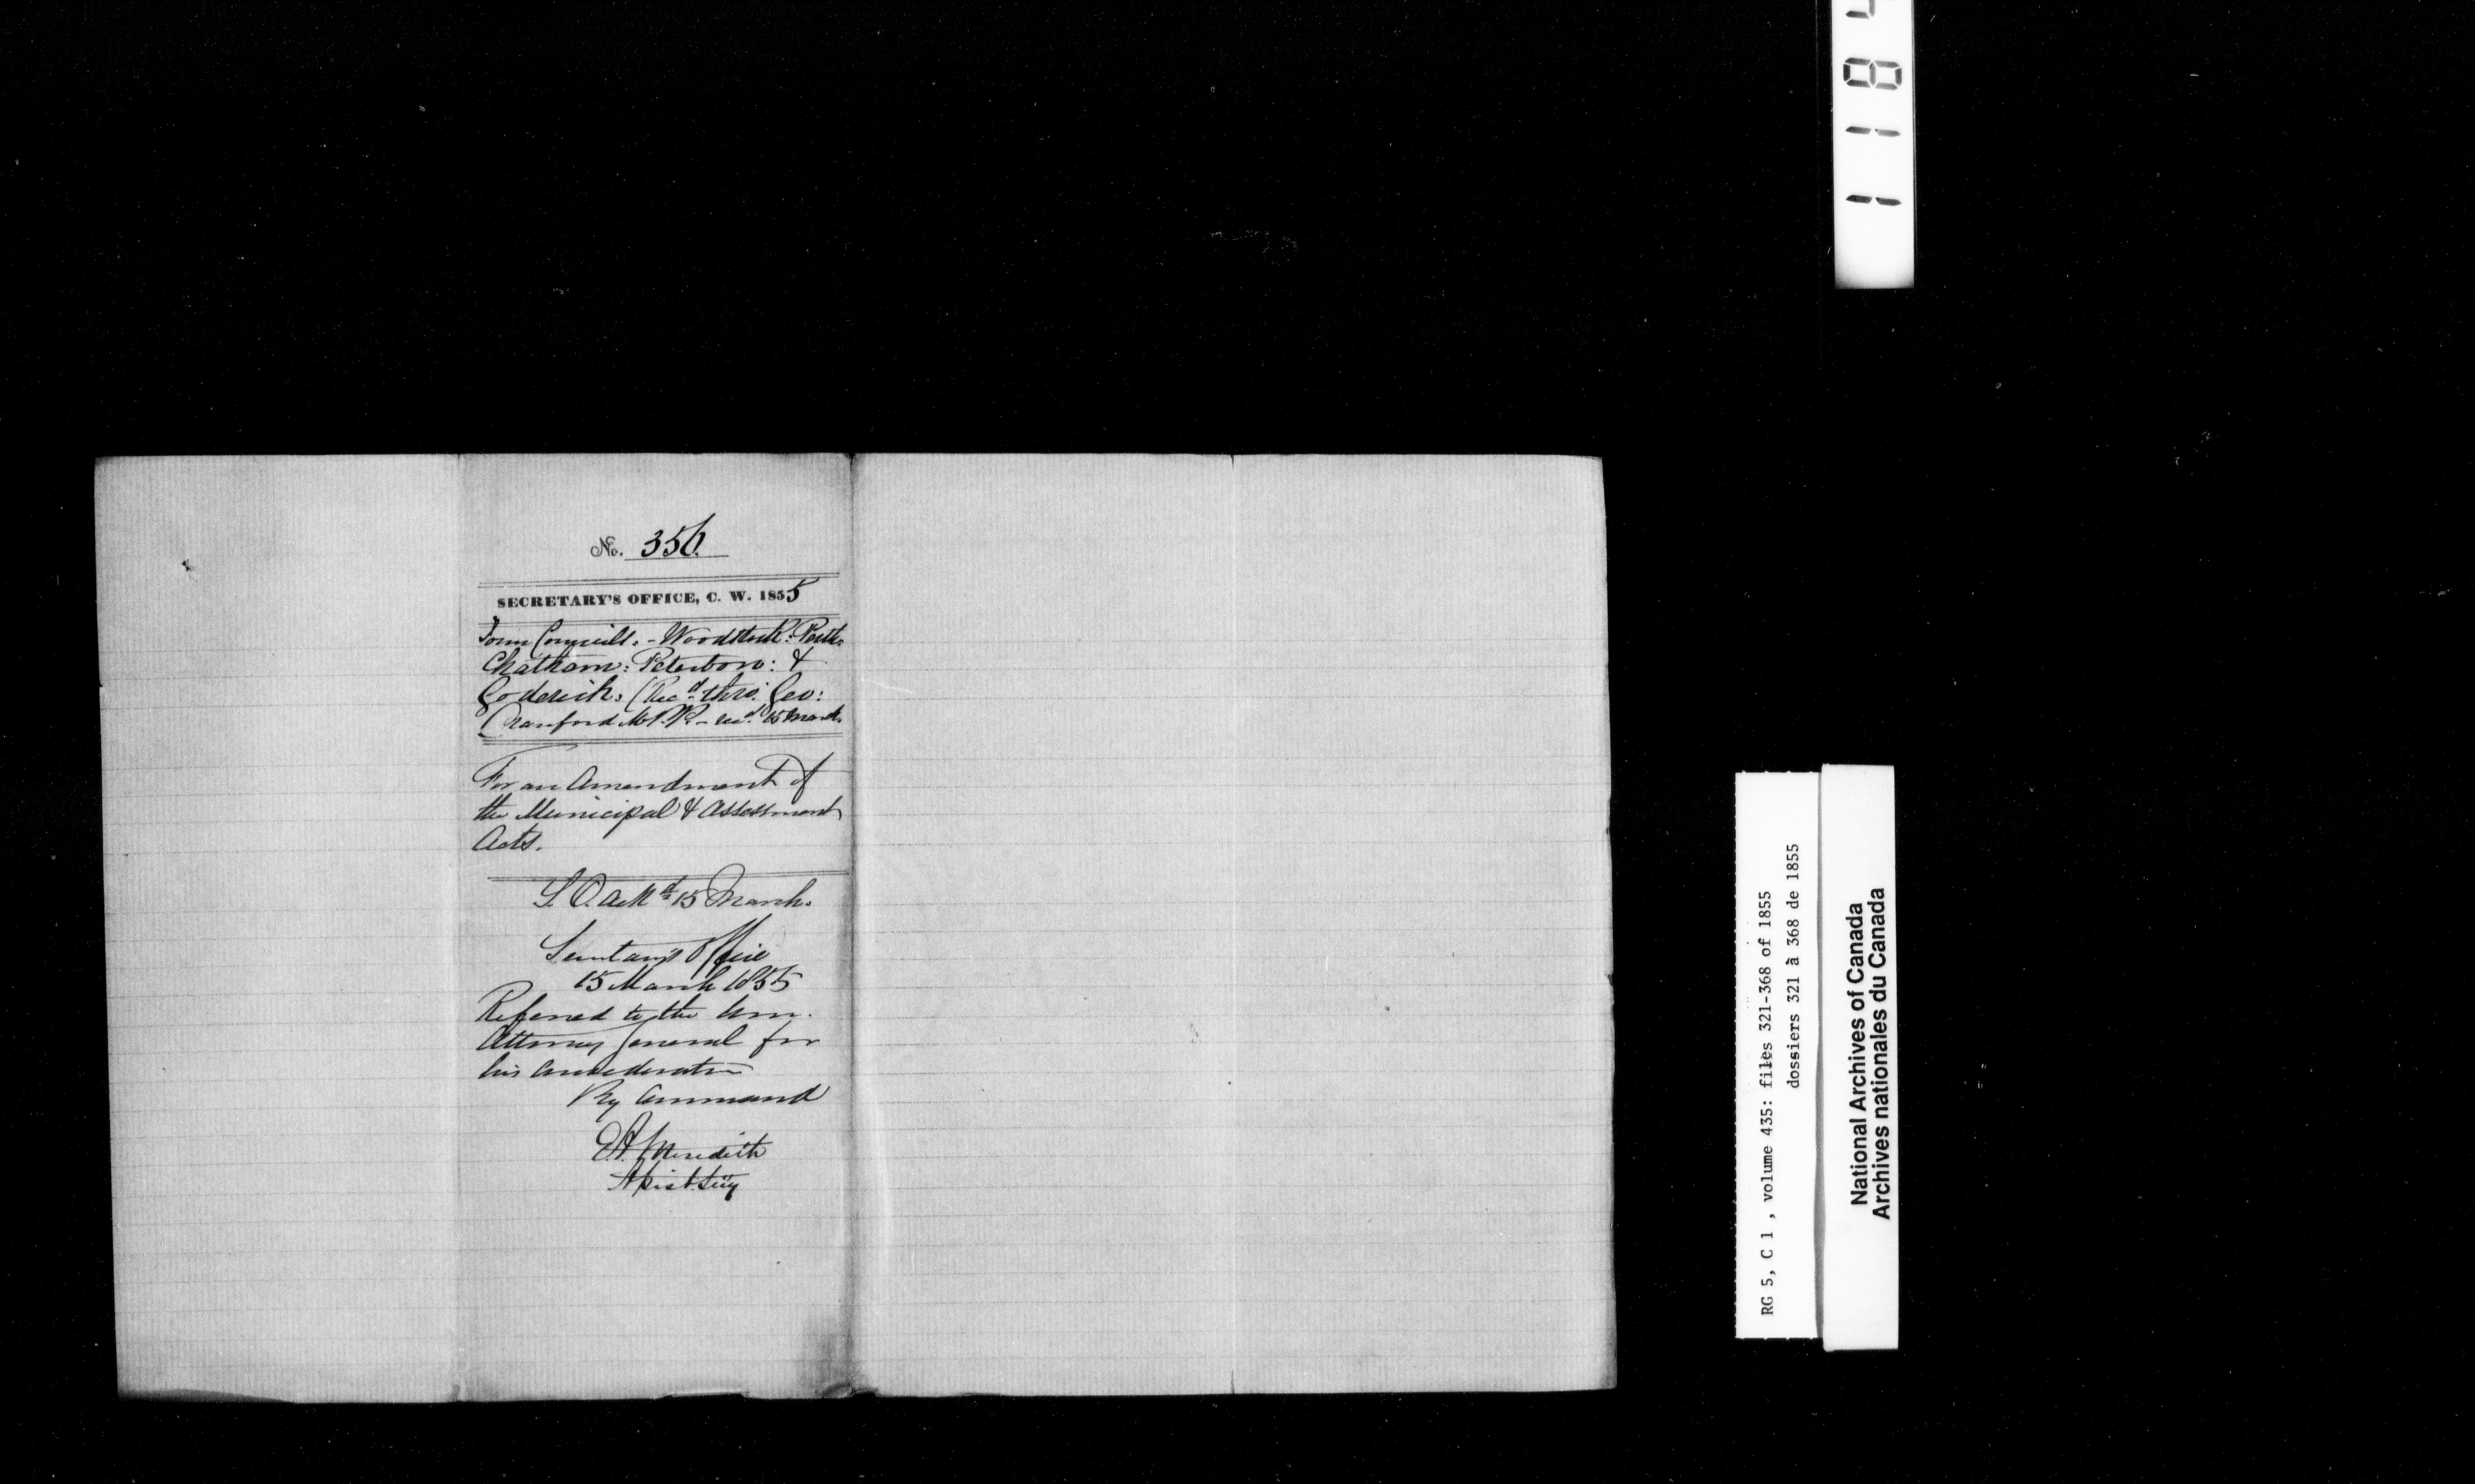 No. 356.
SECRETARY'S OFFICE, C. W. 1855
Town Councils. - Woodstock: Perth:
Chatham: Peterboro: &
Goderich. (Recd. thro. Geo:
Crawford M.P.P. - recd. 15 March.
For an Amendment of
the Municipal & Assessment
Acts.
L. O. Ackd. 15 March.
Secretary's Office
15 March 1855
Referred to the Hon.
Attorney General for
his consideration
By Command
E.A. Meredith
Assist. Secy
1 1 8 4
RG 5, C 1 , volume 435: files 321-368 of 1855
dossiers 321 à 368 de 1855
National Archives of Canada
Archives nationales du Canada